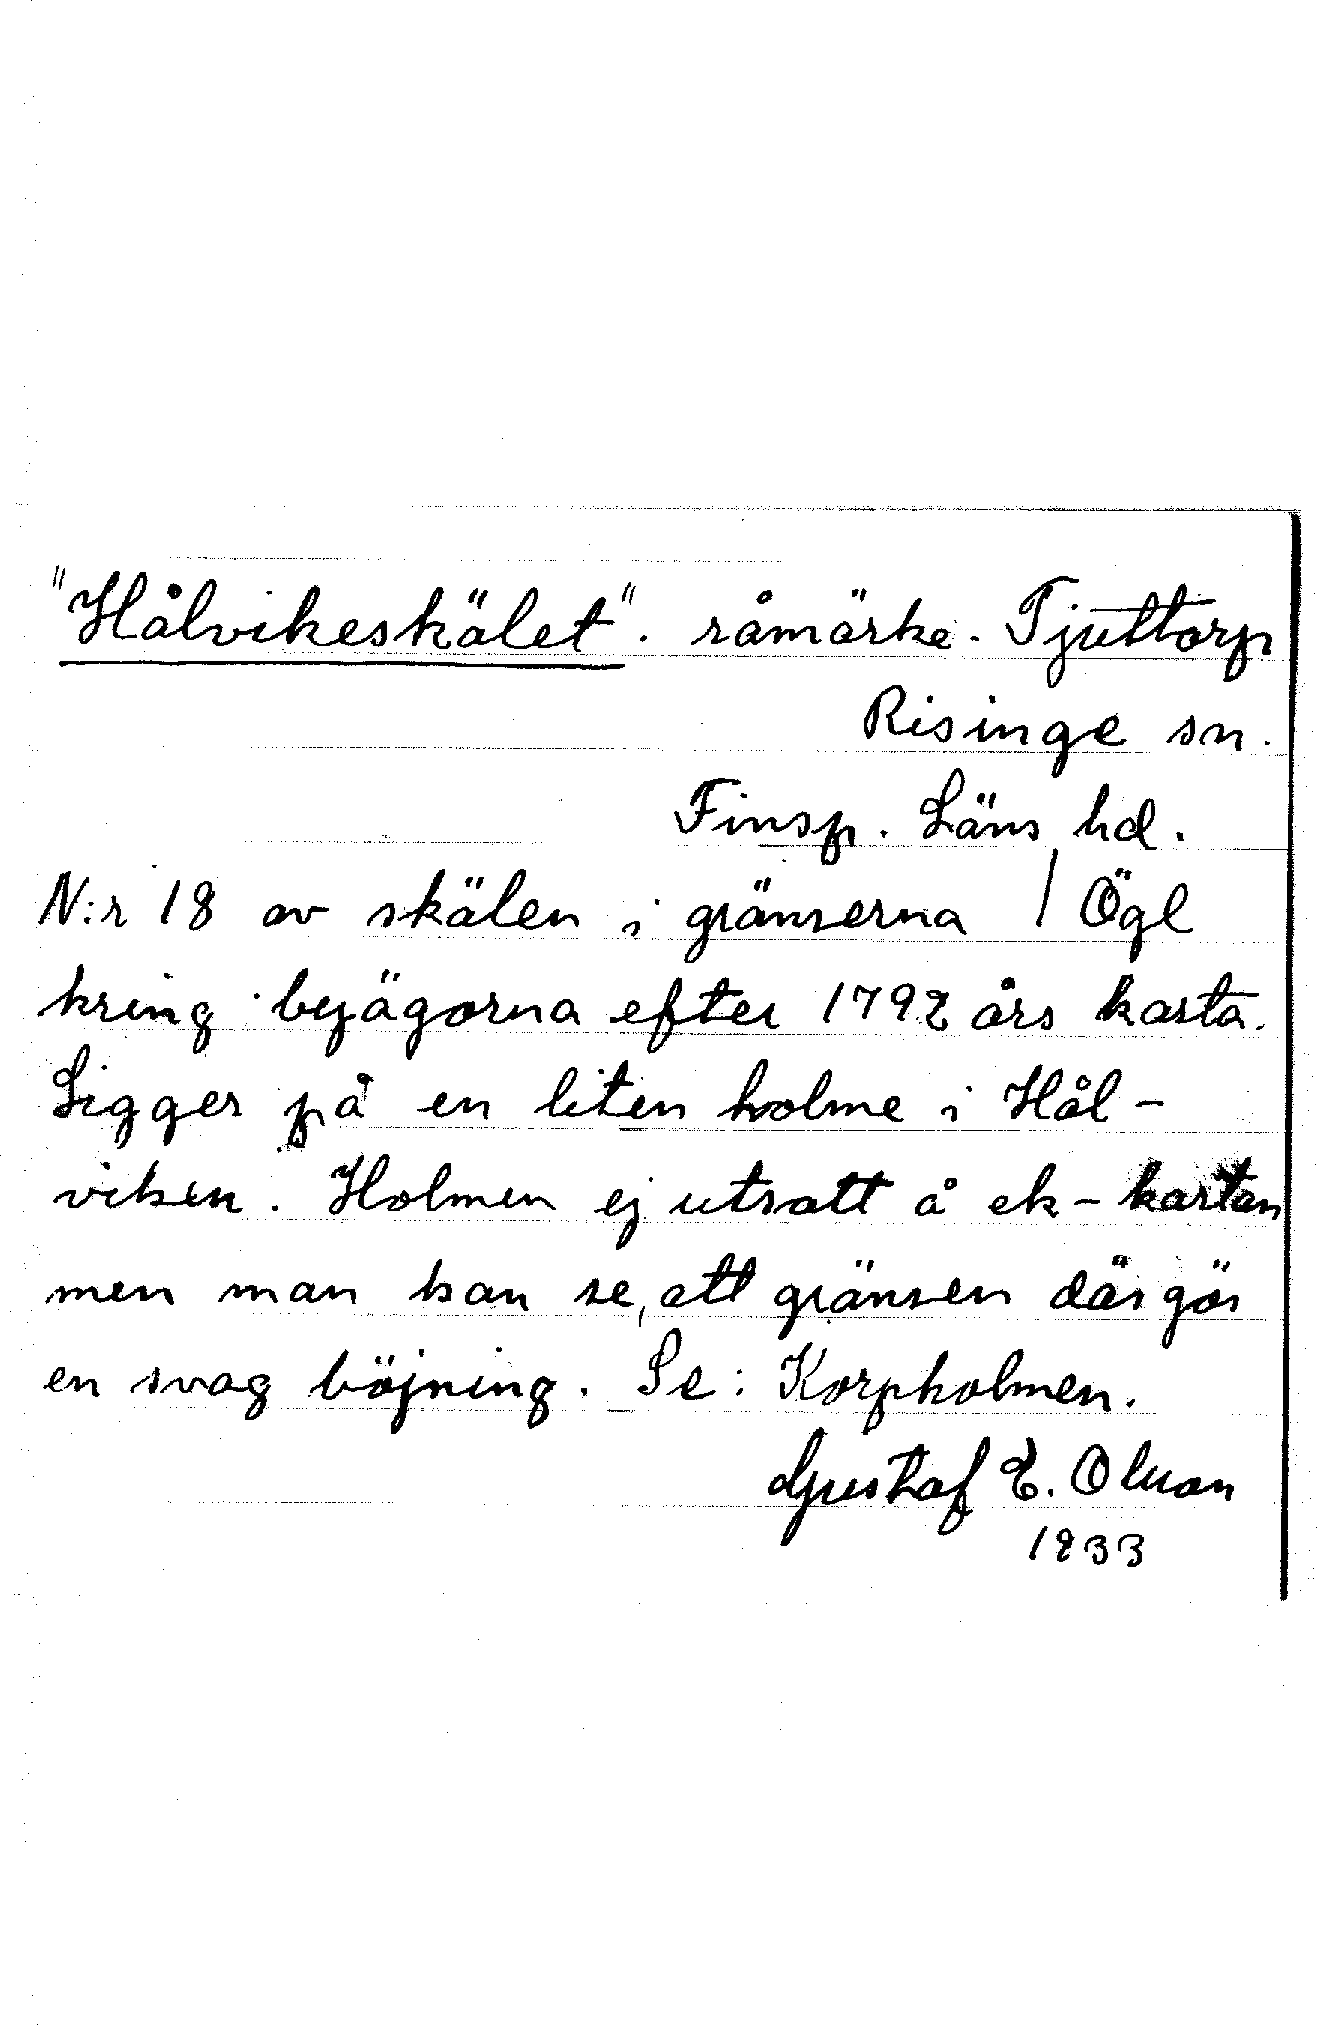 "Hålvikeskälet". råmärke. Tjuttorp
Risinge sn.
Finsp. Läns hd.
N:r 18 av skälen i gränserna / Ögl
kring byägorna efter 1792 års karta.
Ligger på en liten holme i Hål-
viken. Holmen ej utsatt å ek-kartan
men man kan se, att gränsen där gör
en svag böjning. Se: Korpholmen.
Gustaf E. Olsson
1933